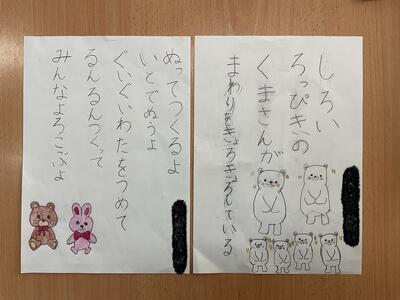 しろい
ろっぴきの
くまさんが
まわりをきょろきょろしている
ぬってつくるよ
いとでぬうよ
ぐいぐいわたをつめて
るんるんつくって
みんなよろこぶよ